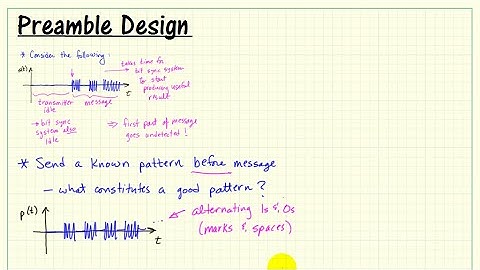 Preamble Design
* Consider the following:
takes time for
bit sync system
to start
producing useful
result
t
transmitter
idle
message
→ bit sync
system also
idle
⇒ first part of message
goes undetected!
* Send a known pattern before message
- what constitutes a good pattern?
p(t)
...
alternating 1s & 0s
(marks & spaces)
t